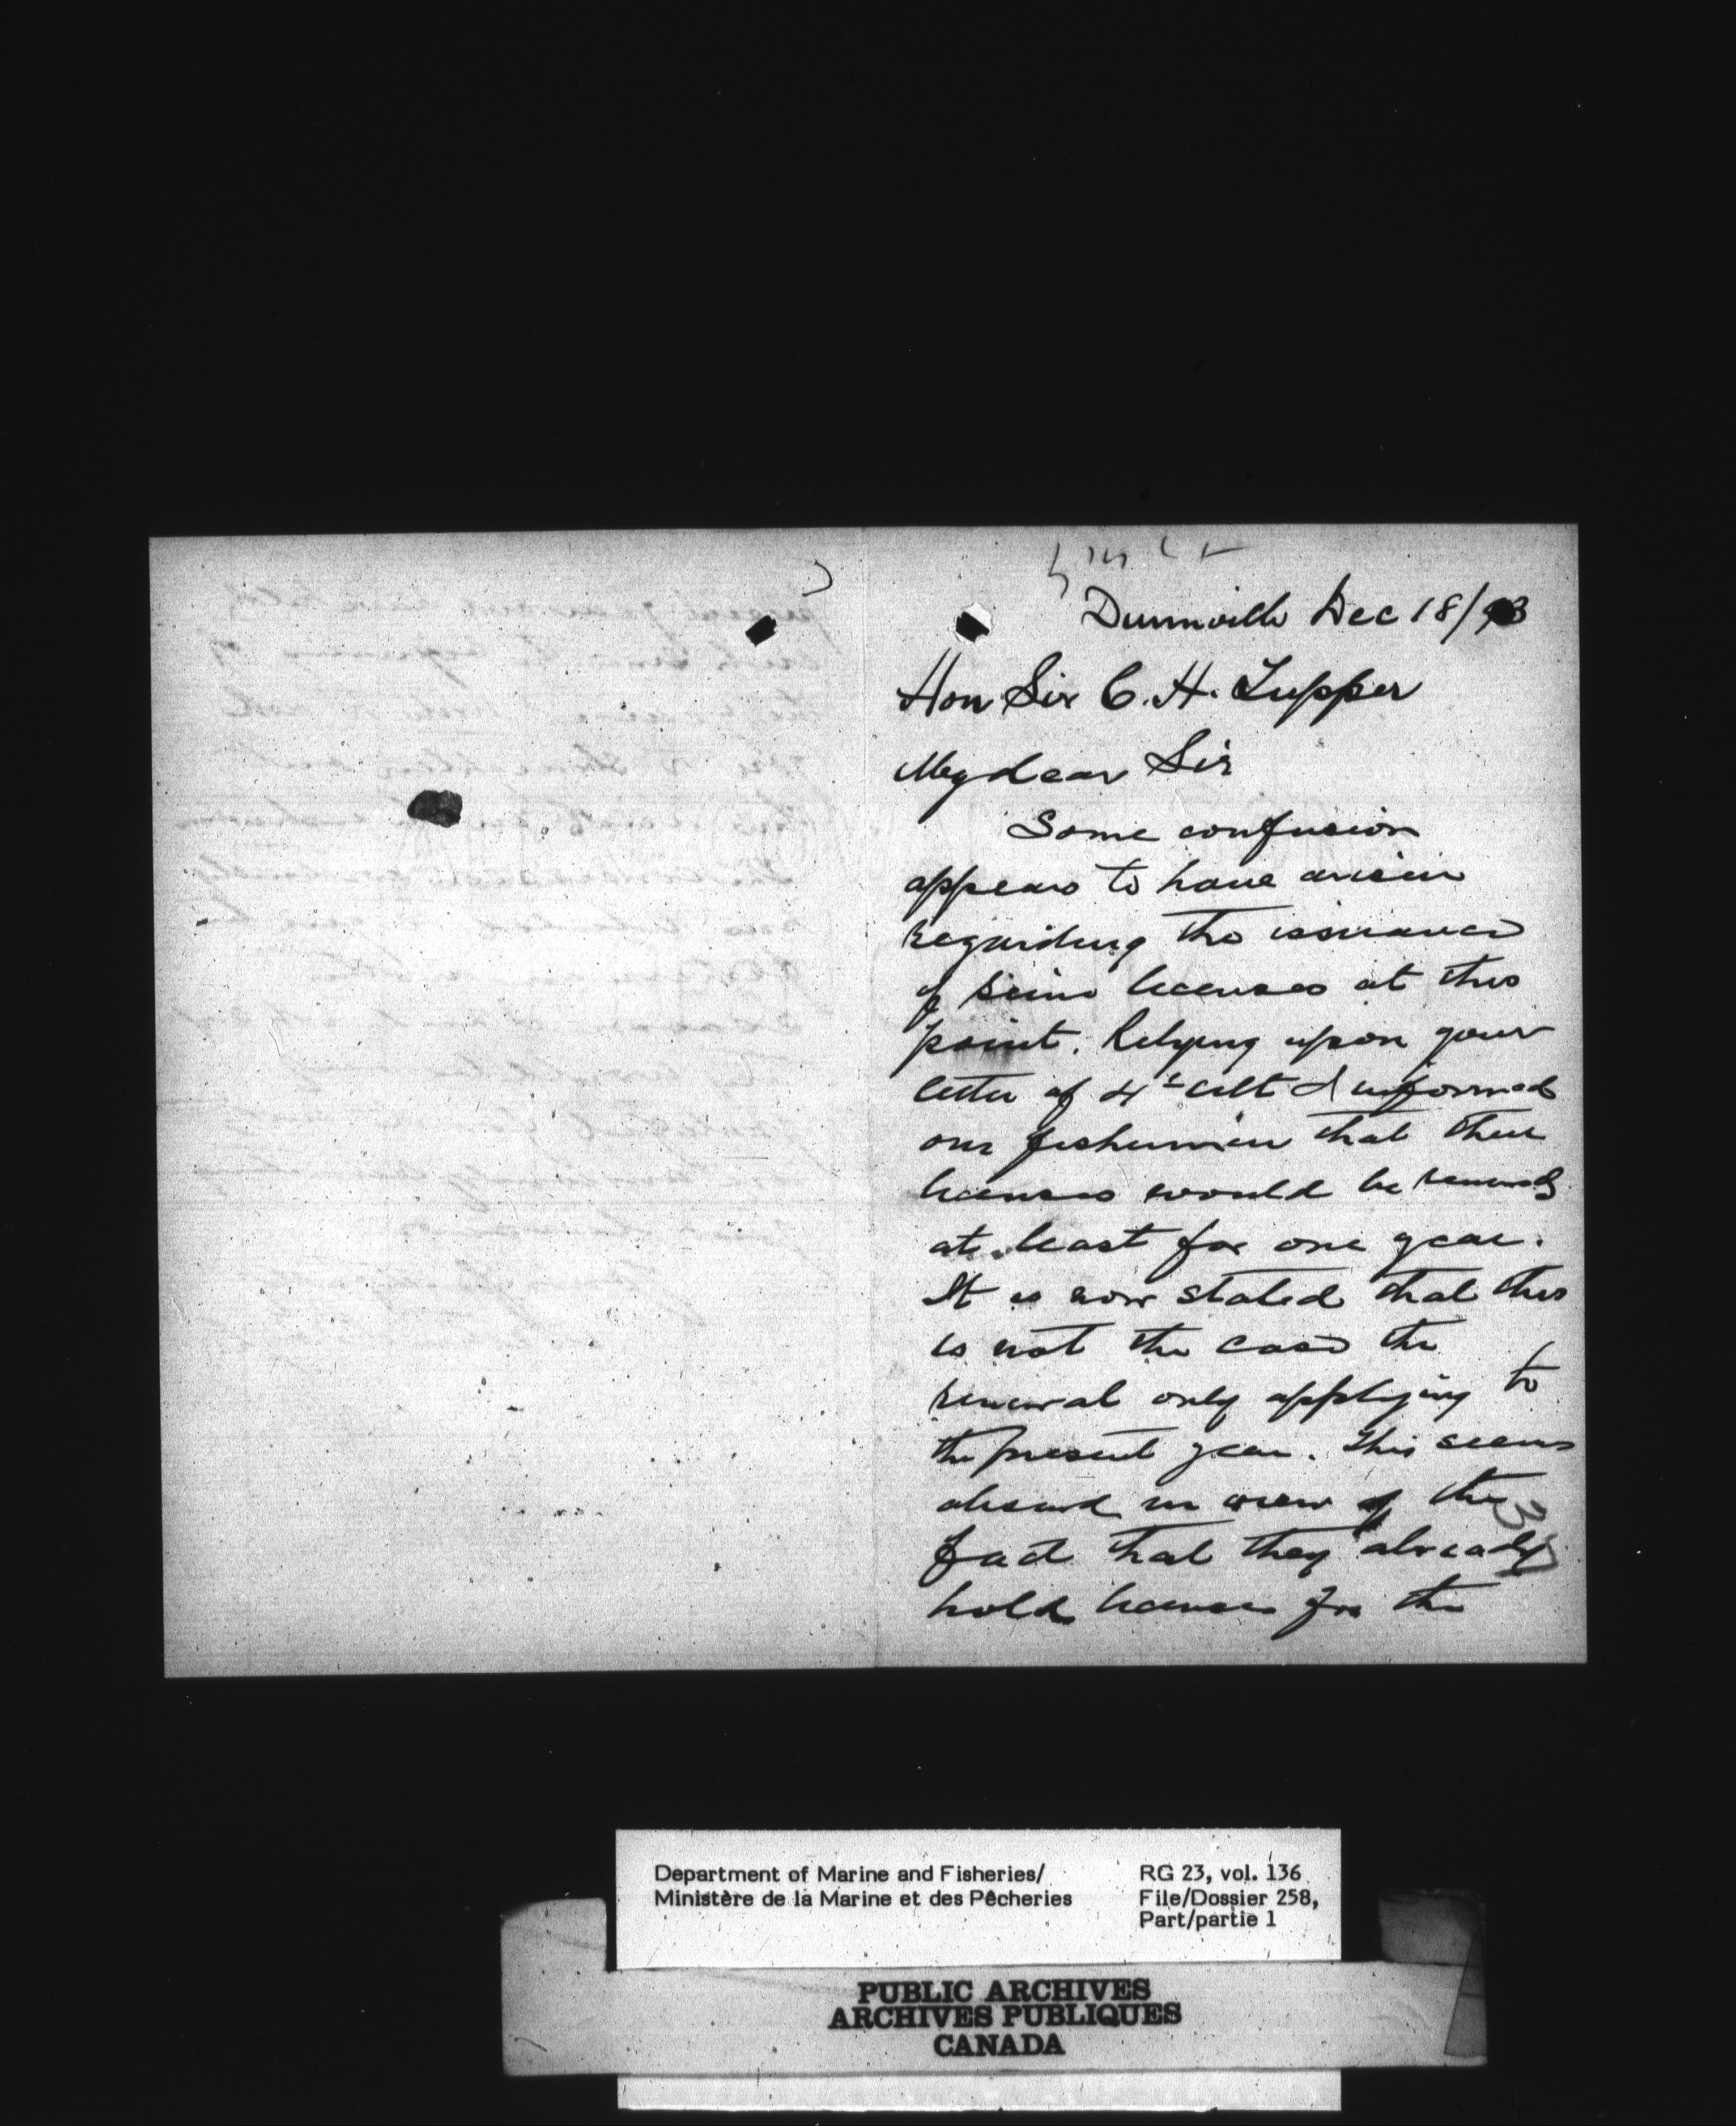 Dunnville Dec 18/93
Hon Sir C. H. Tupper
My dear Sir
Some confusion
appears to have arisen
regarding the issuance
of Seine licenses at this
point. Relying upon your
letter of 4th ult I informed
our fishermen that their
licenses would be renewed
at least for one year.
It is now stated that this
is not the case the
renewal only applying to
the present year. This seems
absurd in view of the
fact that they already
hold licenses for the
37
Department of Marine and Fisheries/
Ministère de la Marine et des Pêcheries
RG 23, vol. 136
File/Dossier 258,
Part/partie 1
PUBLIC ARCHIVES
ARCHIVES PUBLIQUES
CANADA